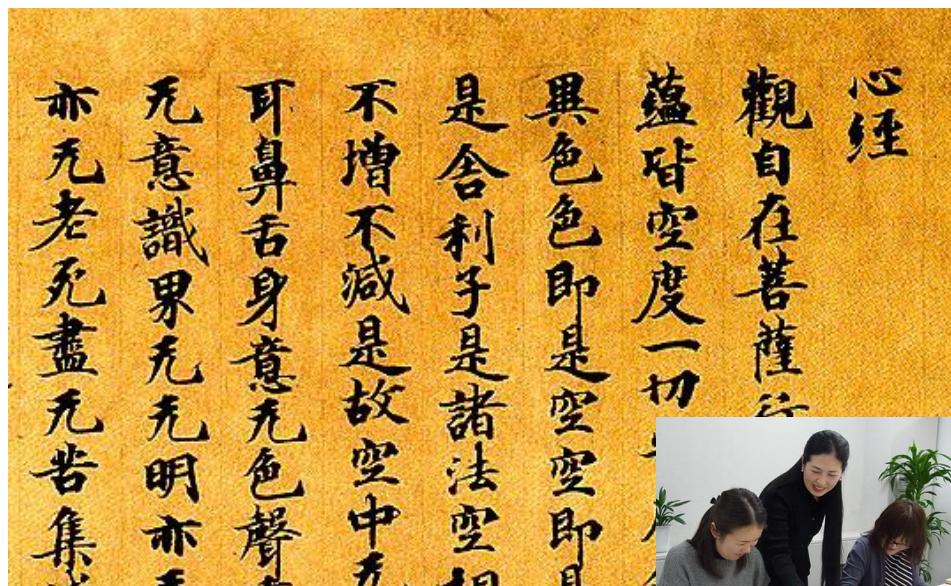 心經
觀自在菩薩行
蘊皆空度一切
異色色即是空空即是
是舍利子是諸法空相
不增不減是故空中无
耳鼻舌身意无色聲
无意識界无无明亦无
亦无老死盡无苦集